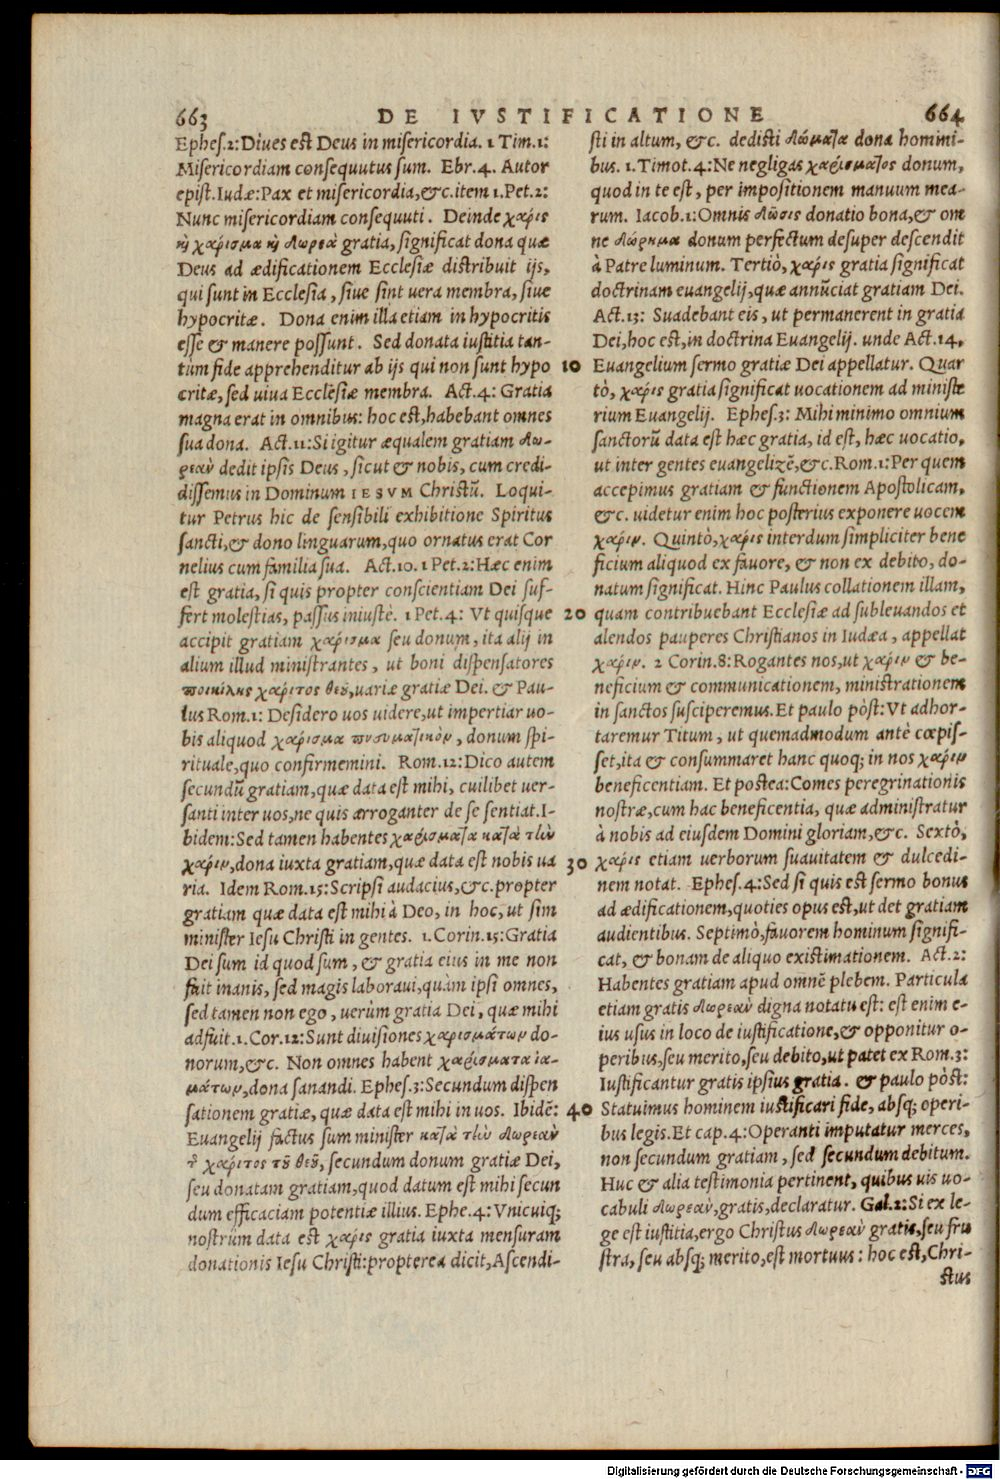 663
DE IVSTIFICATIONE
664
Ephes.2: Diues est Deus in misericordia. 1 Tim.1:
Misericordiam consequutus sum. Ebr.4. Autor
epist. Iudæ: Pax et misericordia, &c. item 1. Pet.2:
Nunc misericordiam consequuti. Deinde χάρις
ἢ χάρισμα ἢ δωρεὰ gratia, significat dona quæ
Deus ad ædificationem Ecclesiæ distribuit ijs,
qui sunt in Ecclesia, siue sint uera membra, siue
hypocritæ. Dona enim illa etiam in hypocritis
esse & manere possunt. Sed donata iustitia tan-
tùm fide apprehenditur ab ijs qui non sunt hypo
critæ, sed uiua Ecclesiæ membra. Act.4: Gratia
magna erat in omnibus: hoc est, habebant omnes
sua dona. Act.11: Si igitur æqualem gratiam δω-
ρεὰν dedit ipsis Deus, sicut & nobis, cum credi-
dissemus in Dominum IESVM Christũ. Loqui-
tur Petrus hic de sensibili exhibitione Spiritus
sancti, & dono linguarum, quo ornatus erat Cor
nelius cum familia sua. Act.10. 1 Pet.2: Hæc enim
est gratia, si quis propter conscientiam Dei suf-
fert molestias, passus iniustè. 1 Pet.4: Vt quisque
accipit gratiam χάρισμα seu donum, ita alij in
alium illud ministrantes, ut boni dispensatores
ποικίλης χάριτος θεοῦ, uariæ gratiæ Dei. & Pau-
lus Rom.1: Desidero uos uidere, ut impertiar uo-
bis aliquod χάρισμα πνευματικὸν, donum spi-
rituale, quo confirmemini. Rom.12: Dico autem
secundũ gratiam, quæ data est mihi, cuilibet uer-
santi inter uos, ne quis arroganter de se sentiat. I-
bidem: Sed tamen habentes χαρίσματα κατὰ τὴν
χάριν, dona iuxta gratiam, quæ data est nobis ua
ria. Idem Rom.15: Scripsi audacius, &c. propter
gratiam quæ data est mihi à Deo, in hoc, ut sim
minister Iesu Christi in gentes. 1. Corin.15: Gratia
Dei sum id quod sum, & gratia eius in me non
fuit inanis, sed magis laboraui, quàm ipsi omnes,
sed tamen non ego, uerùm gratia Dei, quæ mihi
adfuit. 1. Cor.12: Sunt diuisiones χαρισμάτων do-
norum, &c. Non omnes habent χαρίσματα ἰα-
μάτων, dona sanandi. Ephes.3: Secundum dispen
sationem gratiæ, quæ data est mihi in uos. Ibidẽ:
Euangelij factus sum minister κατὰ τὴν δωρεὰν
τῆς χάριτος τοῦ θεοῦ, secundum donum gratiæ Dei,
seu donatam gratiam, quod datum est mihi secun
dum efficaciam potentiæ illius. Ephe.4: Vnicuiq;
nostrûm data est χάρις gratia iuxta mensuram
donationis Iesu Christi: propterea dicit, Ascendi-
10
20
30
40
sti in altum, &c. dedisti δώματα dona homini-
bus. 1. Timot.4: Ne negligas χαρίσματος donum,
quod in te est, per impositionem manuum mea-
rum. Iacob.1: Omnis δῶσις donatio bona, & om
ne δώρημα donum perfectum desuper descendit
à Patre luminum. Tertiò, χάρις gratia significat
doctrinam euangelij, quæ annũciat gratiam Dei.
Act.13: Suadebant eis, ut permanerent in gratia
Dei, hoc est, in doctrina Euangelij. unde Act.14,
Euangelium sermo gratiæ Dei appellatur. Quar
tò, χάρις gratia significat uocationem ad ministe
rium Euangelij. Ephes.3: Mihi minimo omnium
sanctorũ data est hæc gratia, id est, hæc uocatio,
ut inter gentes euangelizẽ, &c. Rom.1: Per quem
accepimus gratiam & functionem Apostolicam,
&c. uidetur enim hoc posterius exponere uocem
χάριν. Quintò, χάρις interdum simpliciter bene
ficium aliquod ex fauore, & non ex debito, do-
natum significat. Hinc Paulus collationem illam,
quam contribuebant Ecclesiæ ad subleuandos et
alendos pauperes Christianos in Iudæa, appellat
χάριν. 2 Corin.8: Rogantes nos, ut χάριν & be-
neficium & communicationem, ministrationem
in sanctos susciperemus. Et paulo pòst: Vt adhor-
taremur Titum, ut quemadmodum antè cœpis-
set, ita & consummaret hanc quoq; in nos χάριν
beneficentiam. Et postea: Comes peregrinationis
nostræ, cum hac beneficentia, quæ administratur
à nobis ad eiusdem Domini gloriam, &c. Sextò,
χάρις etiam uerborum suauitatem & dulcedi-
nem notat. Ephes.4: Sed si quis est sermo bonus
ad ædificationem, quoties opus est, ut det gratiam
audientibus. Septimò, fauorem hominum signifi-
cat, & bonam de aliquo existimationem. Act.2:
Habentes gratiam apud omnẽ plebem. Particula
etiam gratis δωρεὰν digna notatu est: est enim e-
ius usus in loco de iustificatione, & opponitur o-
peribus, seu merito, seu debito, ut patet ex Rom.3:
Iustificantur gratis ipsius gratia. & paulo pòst:
Statuimus hominem iustificari fide, absq; operi-
bus legis. Et cap.4: Operanti imputatur merces,
non secundum gratiam, sed secundum debitum.
Huc & alia testimonia pertinent, quibus uis uo-
cabuli δωρεὰν, gratis, declaratur. Gal.2: Si ex le-
ge est iustitia, ergo Christus δωρεὰν gratis, seu fru
stra, seu absq; merito, est mortuus: hoc est, Chri-
stus
Digitalisierung gefördert durch die Deutsche Forschungsgemeinschaft - DFG